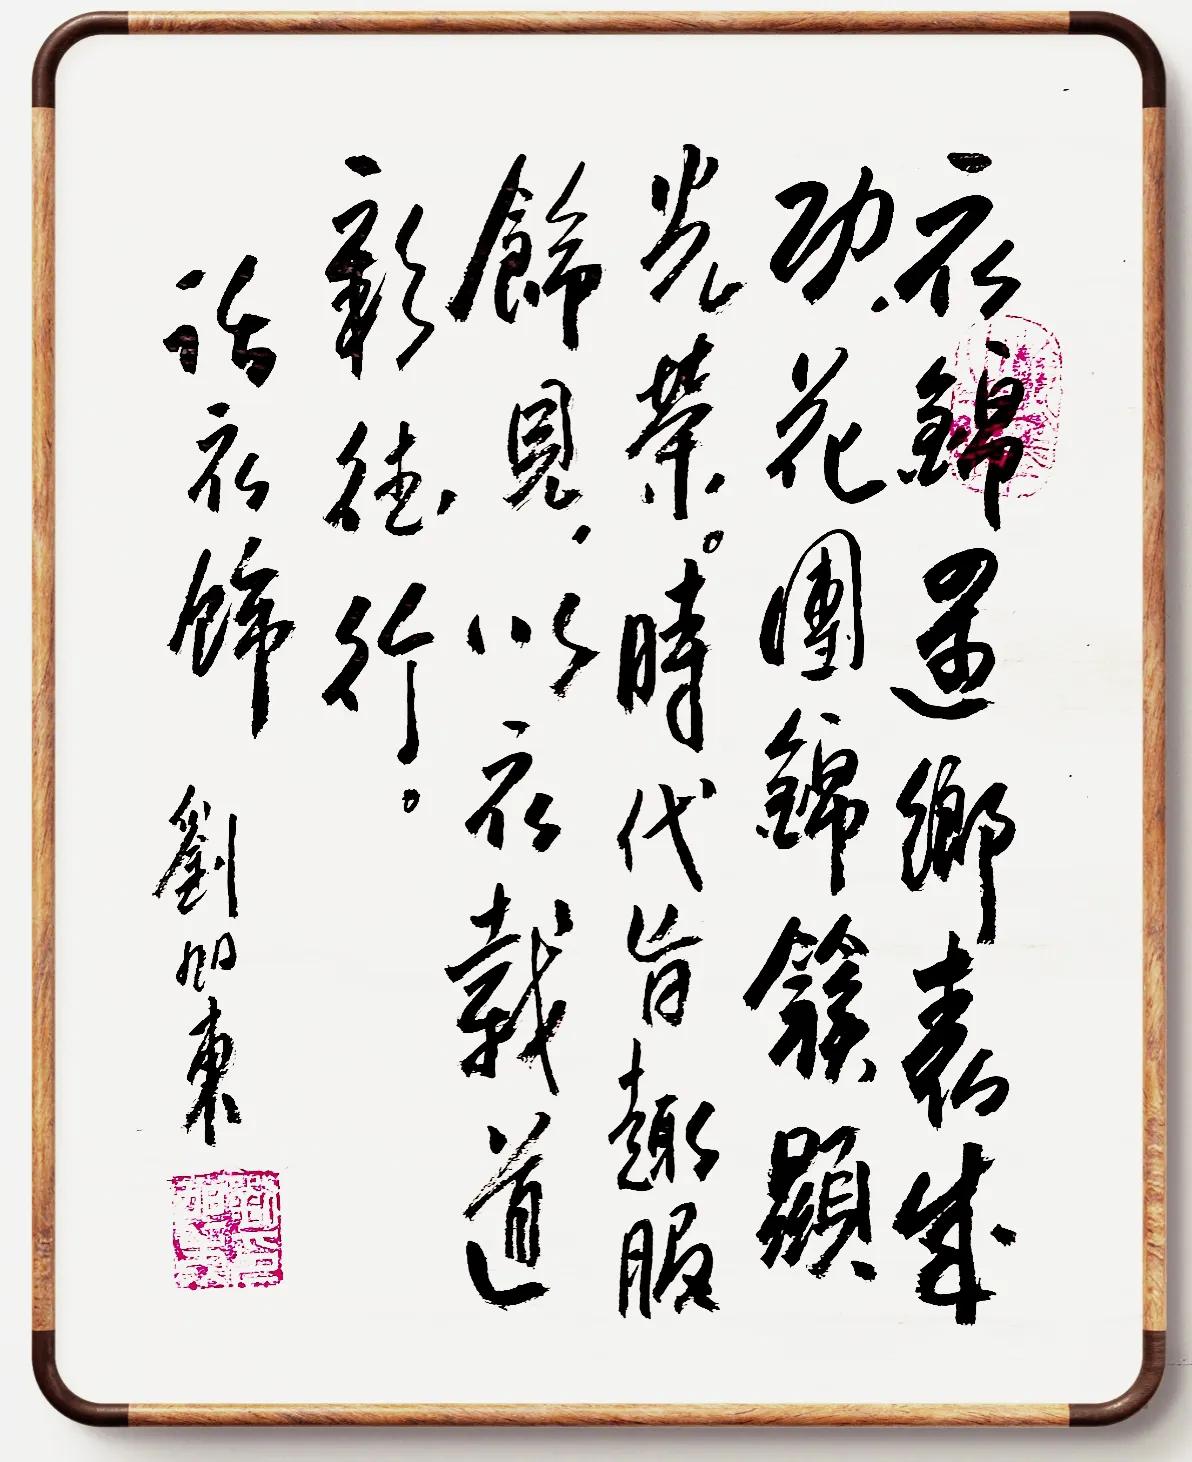 衣錦還鄉表成
功,花團錦簇顯
光榮。時代旨趣服
飾見,以衣載道
彰德行。
話衣飾 劉旭東